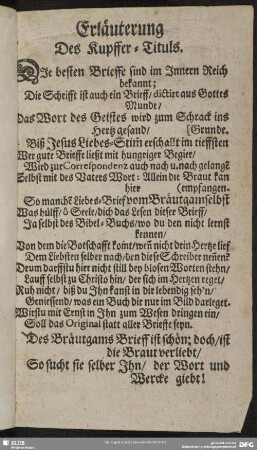 Erläuterung
Des Kupffer-Tituls.
DIe besten Brieffe sind im Innern Reich
bekannt;
Die Schrifft ist auch ein Brieff/ dictirt aus Gottes
Munde/
das Wort des Geistes wird zum Schrack ins
Hertz gesand/ [Grunde.
Biß Jesus Liebes-Stim erschallt im tieffsten
Wer gute Brieffe liest mit hungriger Begier/
Wird zur Correspondenz auch nach u. nach gelangē
Selbst mit des Vaters Wort: Allein die Braut kan
hier (empfangen.
So manchē Liebes-Brief vom Bräutgam selbst
Was hülff/ ô Seele/ dich das Lesen dieser Brieff/
Ja selbst des Bibel-Buchs/ wo du den nicht lernst
kennen/
Von dem die Botschafft komt/ weñ nicht dein Hertze lief
Dem Liebsten selber nach/ den diese Schreiber neñen?
Drum darffstu hier nicht still bey blosen Worten stehn/
Lauff selbst zu Christo hin/ der sich im Hertzen reget/
Ruh nicht/ biß du Jhn kanst in dir lebendig seh'n/
Geniessend/ was ein Buch die nur im Bild darleget.
Wirstu mit Ernst in Jhn zum Wesen dringen ein/
Soll das Original statt aller Brieffe seyn.
Des Bräutgams Brieff ist schön; doch/ ist
die Braut verliebt/
So sucht sie selber Jhn/ der Wort und
Wercke giebt!
SLUB
DFG